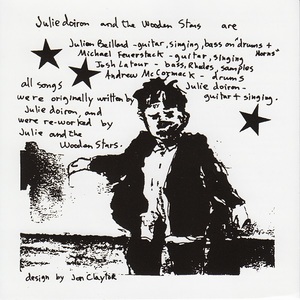 Julie doiron and the Wooden Stars are
Julien Beillard - guitar, singing, bass on "drums + horns"
Michael Feuerstack - guitar, singing
Josh Latour - bass, Rhodes, samples
Andrew McCormack - drums
Julie doiron - guitar + singing.
all songs
were originally written by
Julie doiron, and
were re-worked by
Julie and the
Wooden Stars.
design by Jon Claytor